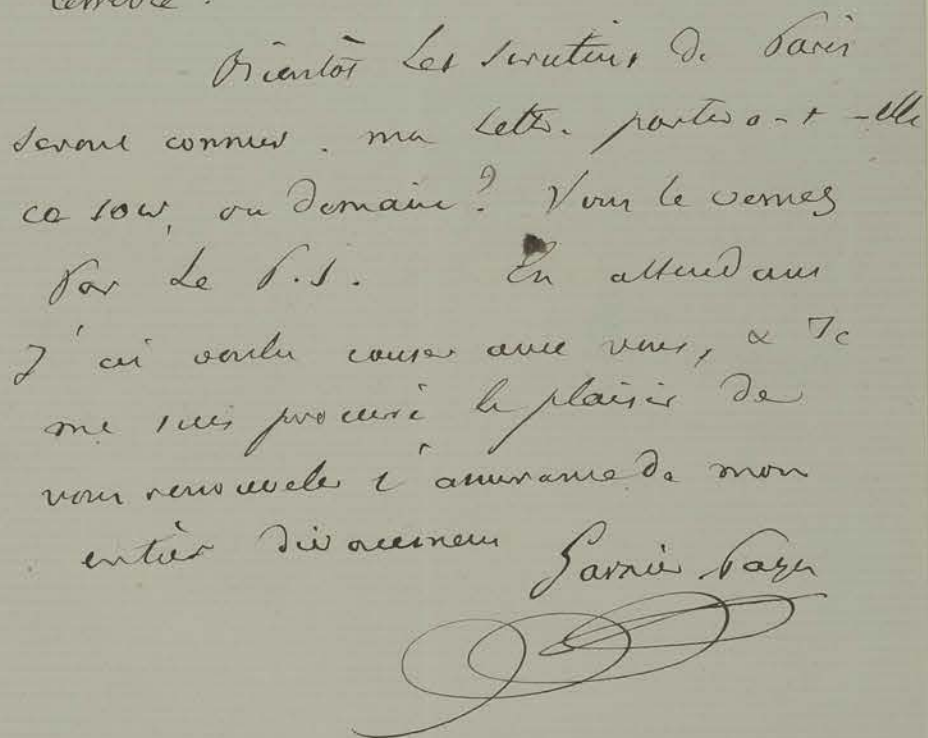 Bientôt les scrutins de Paris
seront connus. ma lettre partira-t-elle
ce soir, ou demain? Vous le verrez
Par le P.S. En attendant
J'ai voulu causer avec vous, & Je
me suis procuré le plaisir de
vous renouveler l'assurance de mon
entier dévouement
Garnier Pagès